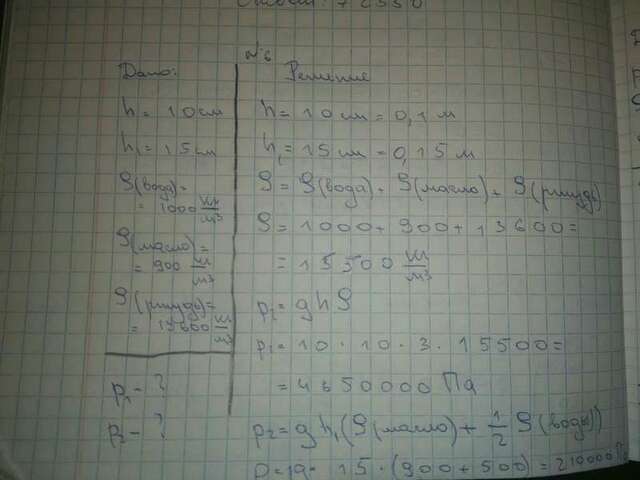 72550
№6
Дано:
h = 10 см
h₁ = 15 см
ρ(вода) =
= 1000 кг/м³
ρ(масло) =
= 900 кг/м³
ρ(ртуть) =
= 13600 кг/м³
p₁ - ?
p₂ - ?
Решение
h = 10 см = 0,1 м
h₁ = 15 см = 0,15 м
ρ = ρ(вода) + ρ(масло) + ρ(ртуть)
ρ = 1000 + 900 + 13600 =
= 15500 кг/м³
p₁ = ghρ
p₁ = 10 · 10 · 3 · 15500 =
= 4650000 Па
p₂ = gh₁(ρ(масло) + 1/2 ρ(воды))
15 · (900 + 500) = 210000